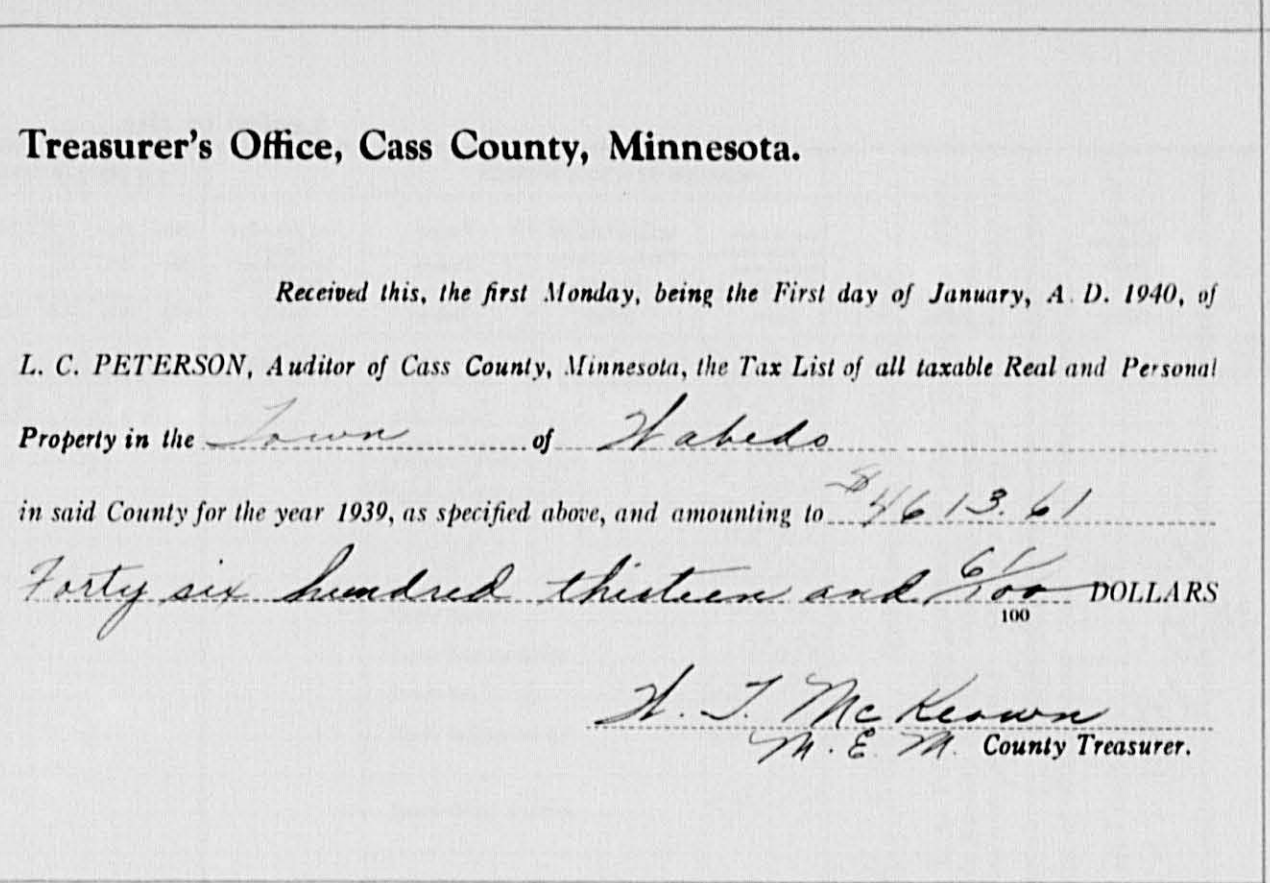 Treasurer's Office, Cass County, Minnesota.
Received this, the first Monday, being the First day of January, A. D. 1940, of
L. C. PETERSON, Auditor of Cass County, Minnesota, the Tax List of all taxable Real and Personal
Property in the Town of Wabedo
in said County for the year 1939, as specified above, and amounting to $4613.61
Forty six hundred thirteen and 61/100 DOLLARS
100
W. T. McKeown
M. E. M. County Treasurer.